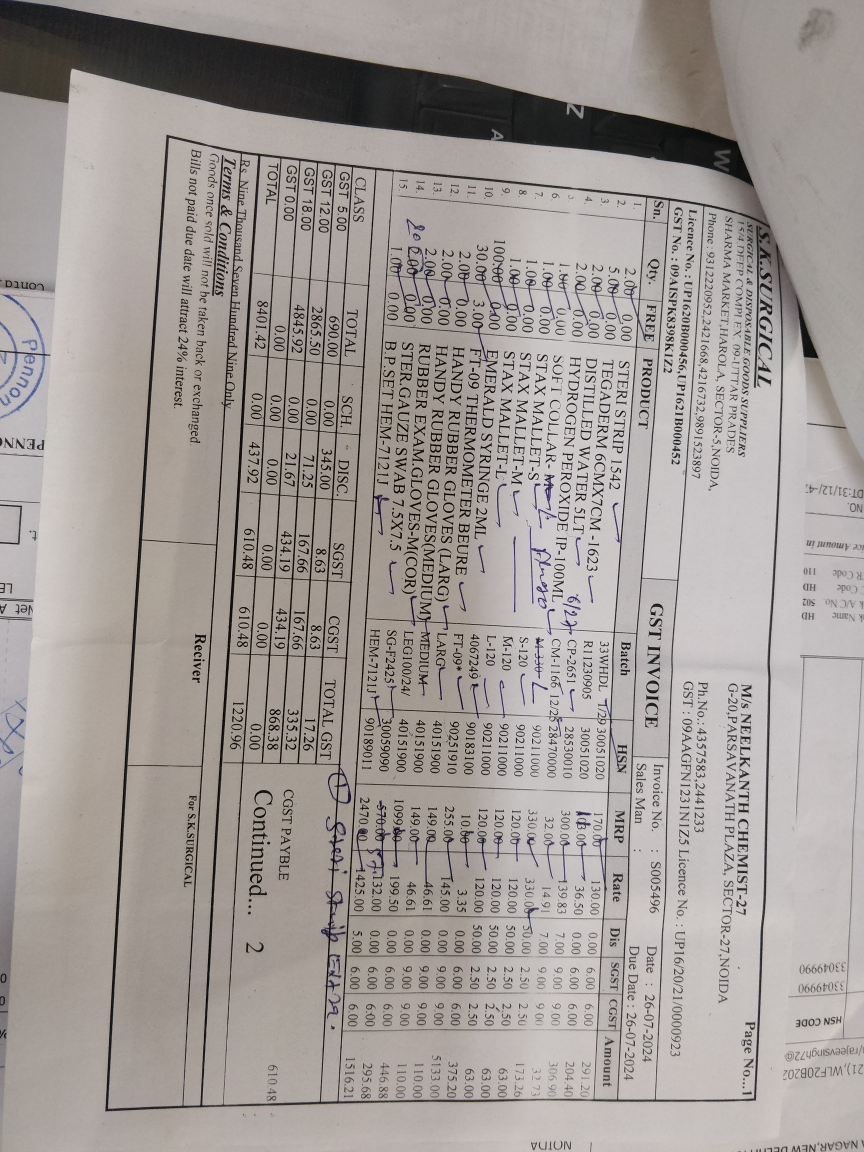 S.K.SURGICAL
SURGICAL & DISPOSABLE GOODS SUPPLIERS
15/4 DEEP COMPLEX 09-UTTAR PRADES
SHARMA MARKET,HAROLA, SECTOR-5,NOIDA,
Phone : 9312220952,2421668,4216732,9891523897
Licence No. : UP1620B000456,UP1621B000452
GST No. : 09AISPK8398K1Z2
GST INVOICE
Page No...1
M/s NEELKANTH CHEMIST-27
G-20,PARSAVANATH PLAZA, SECTOR-27,NOIDA
Ph.No.: 4357583,2441233
GST : 09AAGFN1231N1Z5 Licence No. : UP16/20/21/0000923
Invoice No. : S005496 Date : 26-07-2024
Sales Man : Due Date : 26-07-2024
Sn. Qty. FREE PRODUCT Batch HSN MRP Rate Dis SGST CGST Amount
1. 2.00 0.00 STERI STRIP 1542 33WHDL 1/29 30051020 170.00 130.00 0.00 6.00 6.00 291.20
2. 5.00 0.00 TEGADERM 6CMX7CM -1623 R11230905 30051020 36.50 0.00 6.00 6.00 204.40
3. 2.00 0.00 DISTILLED WATER 5LT 6/27 CP-2651 28530010 300.00 139.83 7.00 9.00 9.00 306.90
4. 2.00 0.00 HYDROGEN PEROXIDE IP-100ML CM-1166 12/25 28470000 32.00 14.91 7.00 9.00 9.00 32.73
5. 1.00 0.00 SOFT COLLAR- 90211000 330.00 330.00 50.00 2.50 2.50 173.26
6. 1.00 0.00 STAX MALLET-S S-120 90211000 120.00 120.00 50.00 2.50 2.50 63.00
7. 1.00 0.00 STAX MALLET-M M-120 90211000 120.00 120.00 50.00 2.50 2.50 63.00
8. 1.00 0.00 STAX MALLET-L L-120 90211000 120.00 120.00 50.00 2.50 2.50 63.00
9. 100.00 0.00 EMERALD SYRINGE 2ML 4067249 90183100 10.00 3.35 0.00 6.00 6.00 375.20
10. 30.00 3.00 FT-09 THERMOMETER BEURE FT-09* 90251910 255.00 145.00 0.00 9.00 9.00 5133.00
11. 2.00 0.00 HANDY RUBBER GLOVES (LARG) LARG 40151900 149.00 46.61 0.00 9.00 9.00 110.00
12. 2.00 0.00 HANDY RUBBER GLOVES(MEDIUM) MEDIUM 40151900 149.00 46.61 0.00 9.00 9.00 110.00
13. 2.00 0.00 RUBBER EXAM.GLOVES-M(COR) LEG100/24/ 40151900 199.50 0.00 6.00 6.00 446.88
14. 2.00 0.00 STER.GAUZE SWAB 7.5X7.5 SG-F2425 30059090 570.00 132.00 0.00 6.00 6.00 295.68
15. 1.00 0.00 B.P.SET HEM-7121J HEM-7121J 90189011 2470.00 1425.00 5.00 6.00 6.00 1516.21
CLASS TOTAL SCH. DISC. SGST CGST TOTAL GST
GST 5.00 690.00 0.00 345.00 8.63 8.63 17.26
GST 12.00 2865.50 0.00 71.25 167.66 167.66 335.32
GST 18.00 4845.92 0.00 21.67 434.19 434.19 868.38
GST 0.00 0.00 0.00 0.00 0.00 0.00 0.00
TOTAL 8401.42 0.00 437.92 610.48 610.48 1220.96
CGST PAYBLE 610.48
Continued... 2
Rs. Nine Thousand Seven Hundred Nine Only
Terms & Conditions
Goods once sold will not be taken back or exchanged.
Bills not paid due date will attract 24% interest.
Reciver
For S.K.SURGICAL
HSN CODE
33049990
33049990
DT:31/12/
NOIDA
W
Z
A